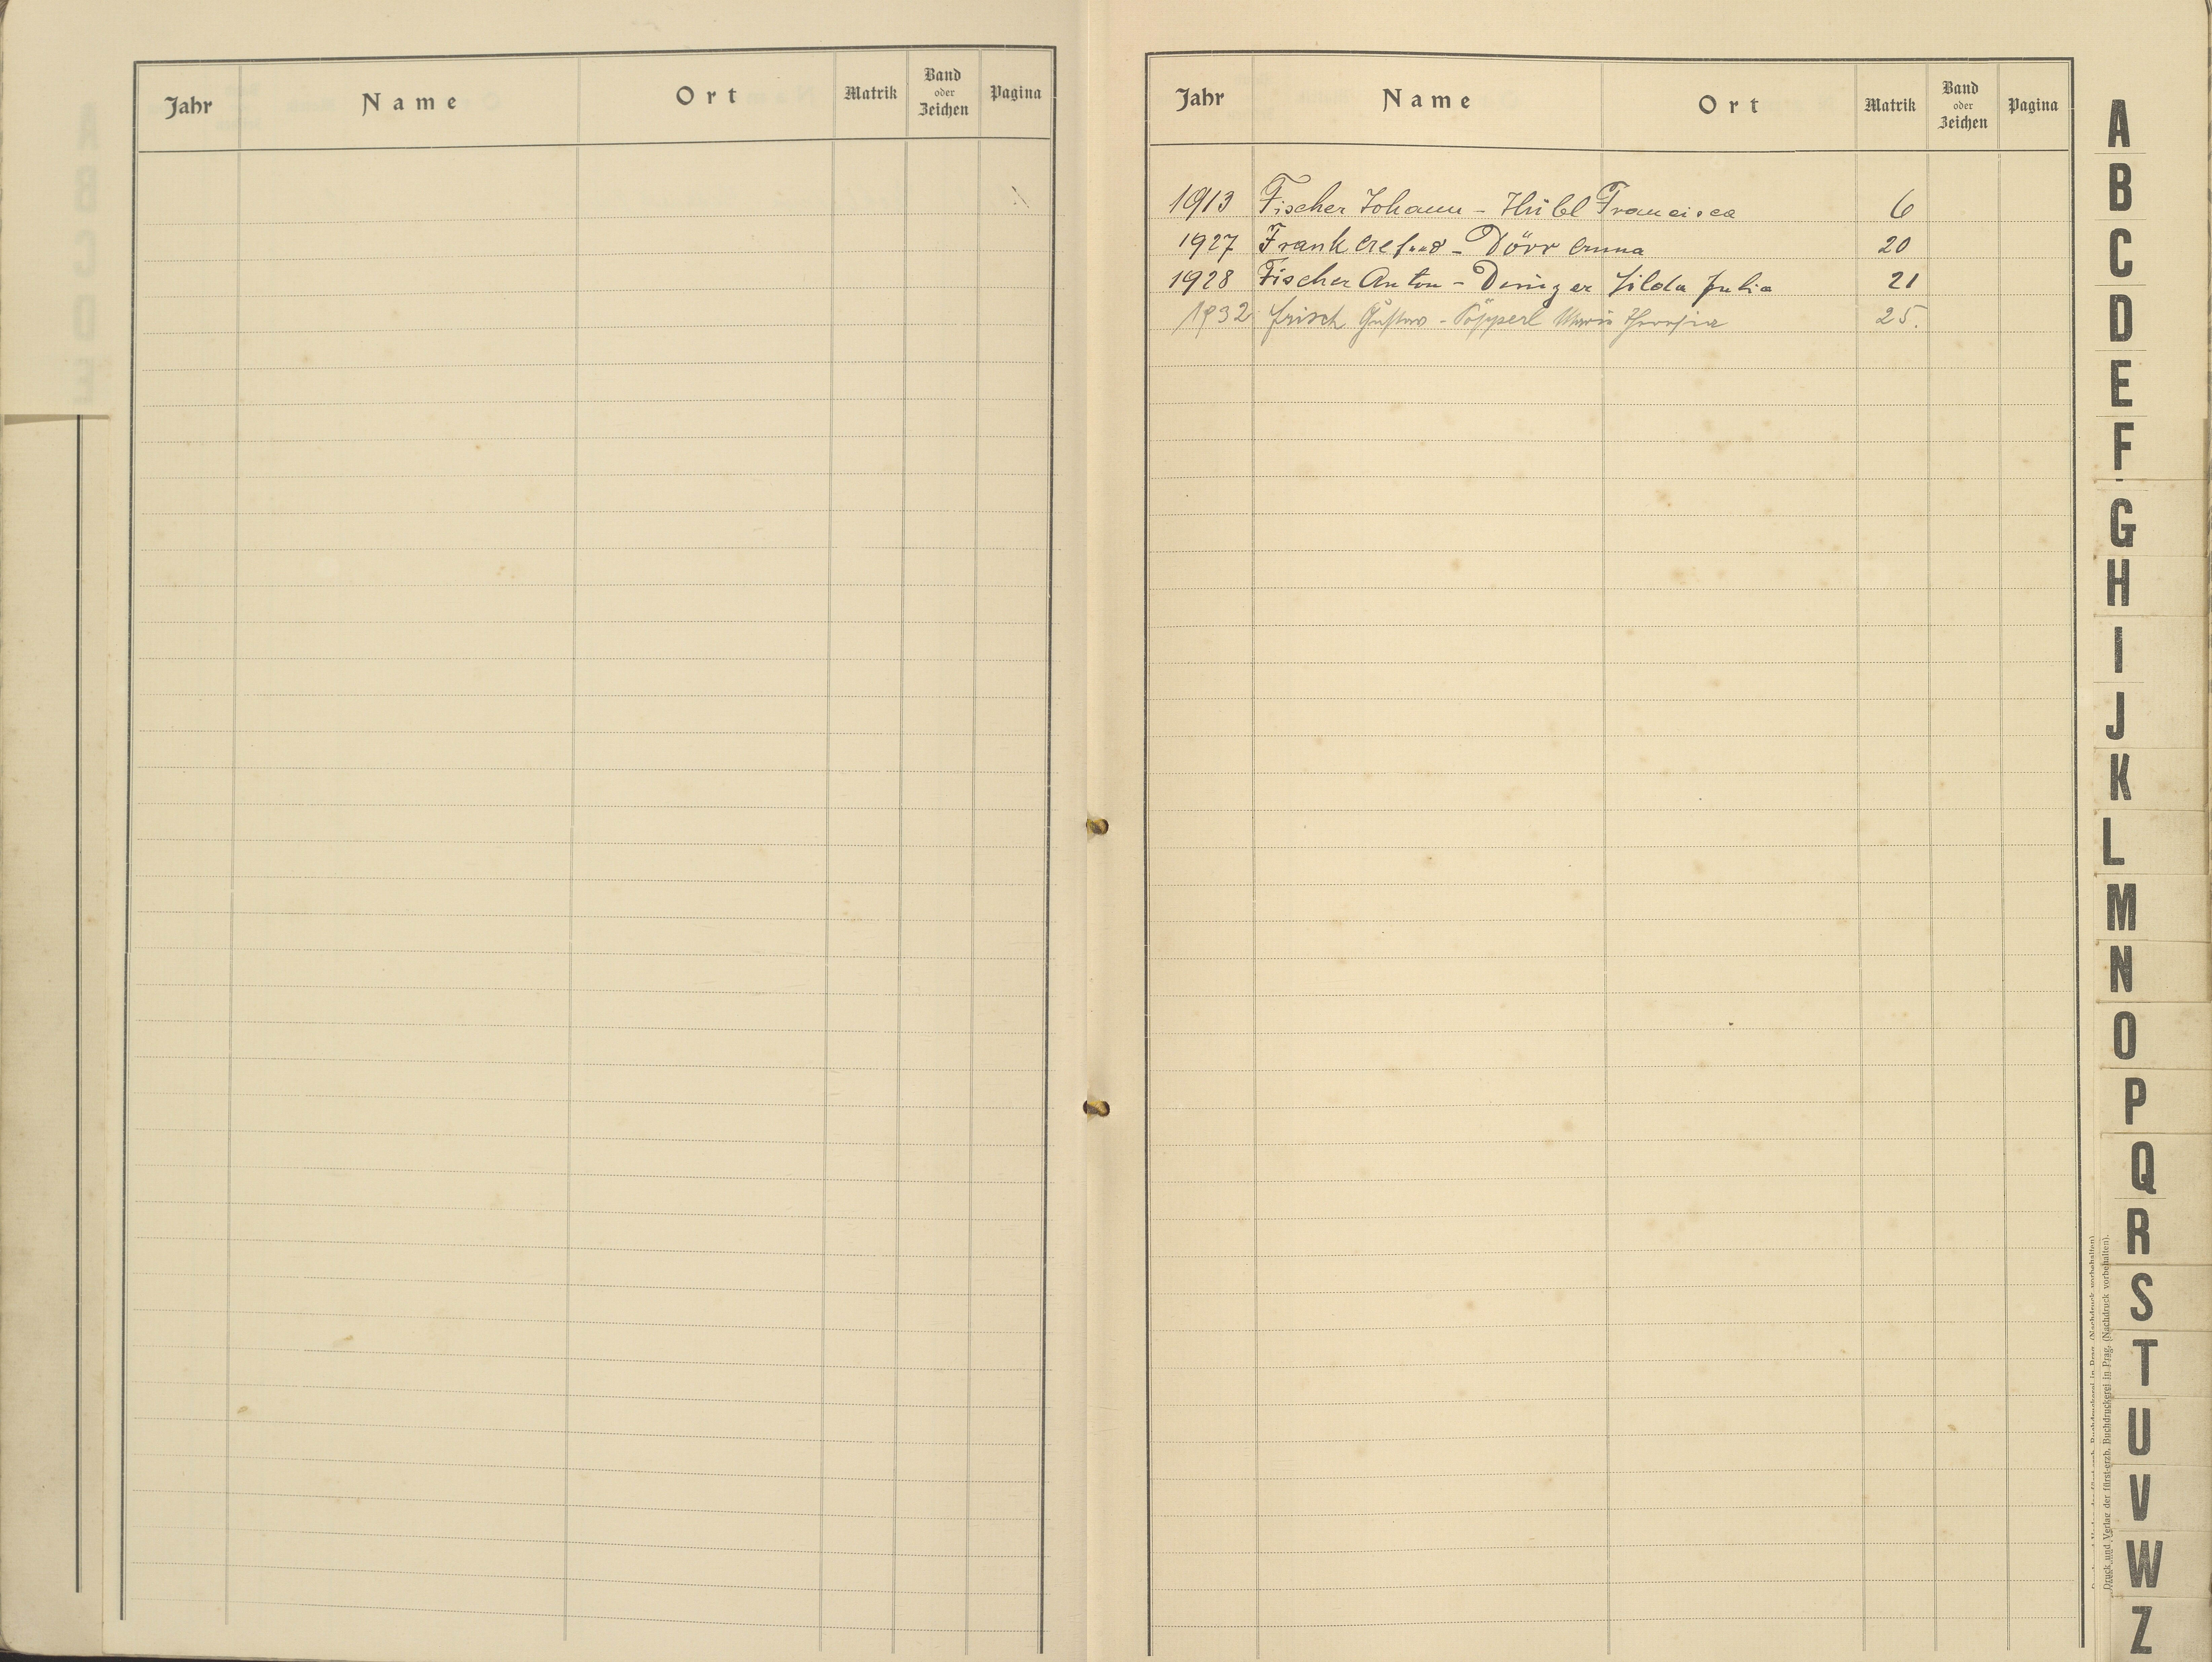 Jahr Name Ort Matrik Band oder Zeichen Pagina
Jahr Name Ort Matrik Band oder Zeichen Pagina
1913 Fischer Johann - Hübl Francisca 6
1927 Frank - Dörr 20
1928 Fischer Anton - Julia 21
1932 Frisch Gustav - Pöpperl Maria Theresia 25.
A
B
C
D
E
F
G
H
I
J
K
L
M
N
O
P
Q
R
S
T
U
V
W
Z
Druck und Verlag der fürst-erzb. Buchdruckerei in Prag. (Nachdruck vorbehalten).